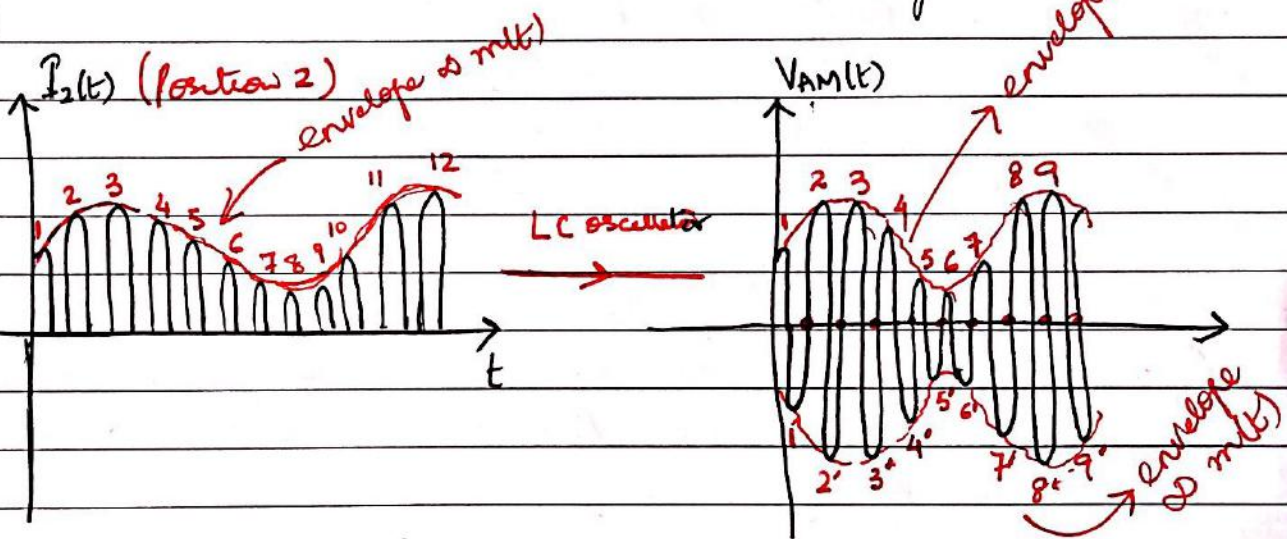 I₂(t) (Position 2)
envelope ∝ m(t)
1 2 3 4 5 6 7 8 9 10 11 12
t
LC oscillator
VAM(t)
envelope
1 2 3 4 5 6 7 8 9
1' 2' 3' 4' 5' 6' 7' 8' 9'
envelope
∝ m(t)